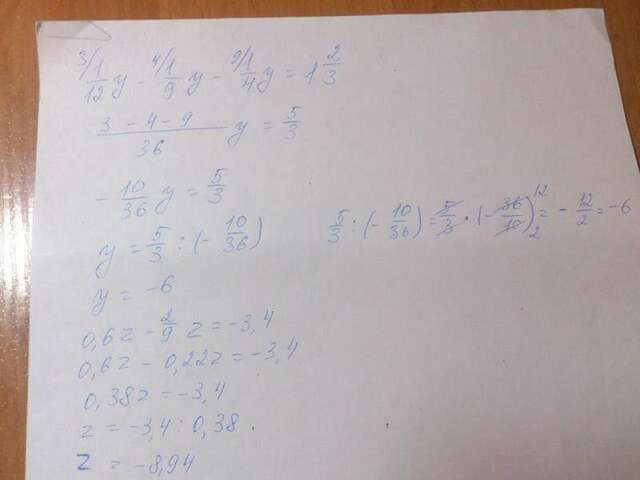 3/ 1/12 y - 4/ 1/9 y - 9/ 1/4 y = 1 2/3
3 - 4 - 9 / 36 y = 5/3
- 10/36 y = 5/3
y = 5/3 : (- 10/36)
5/3 : (- 10/36) = 5/3 · (- 36/10) 12 2 = - 12/2 = -6
y = -6
0,6z - 2/9 z = -3,4
0,6z - 0,22z = -3,4
0,38z = -3,4
z = -3,4 : 0,38.
z = -8,94